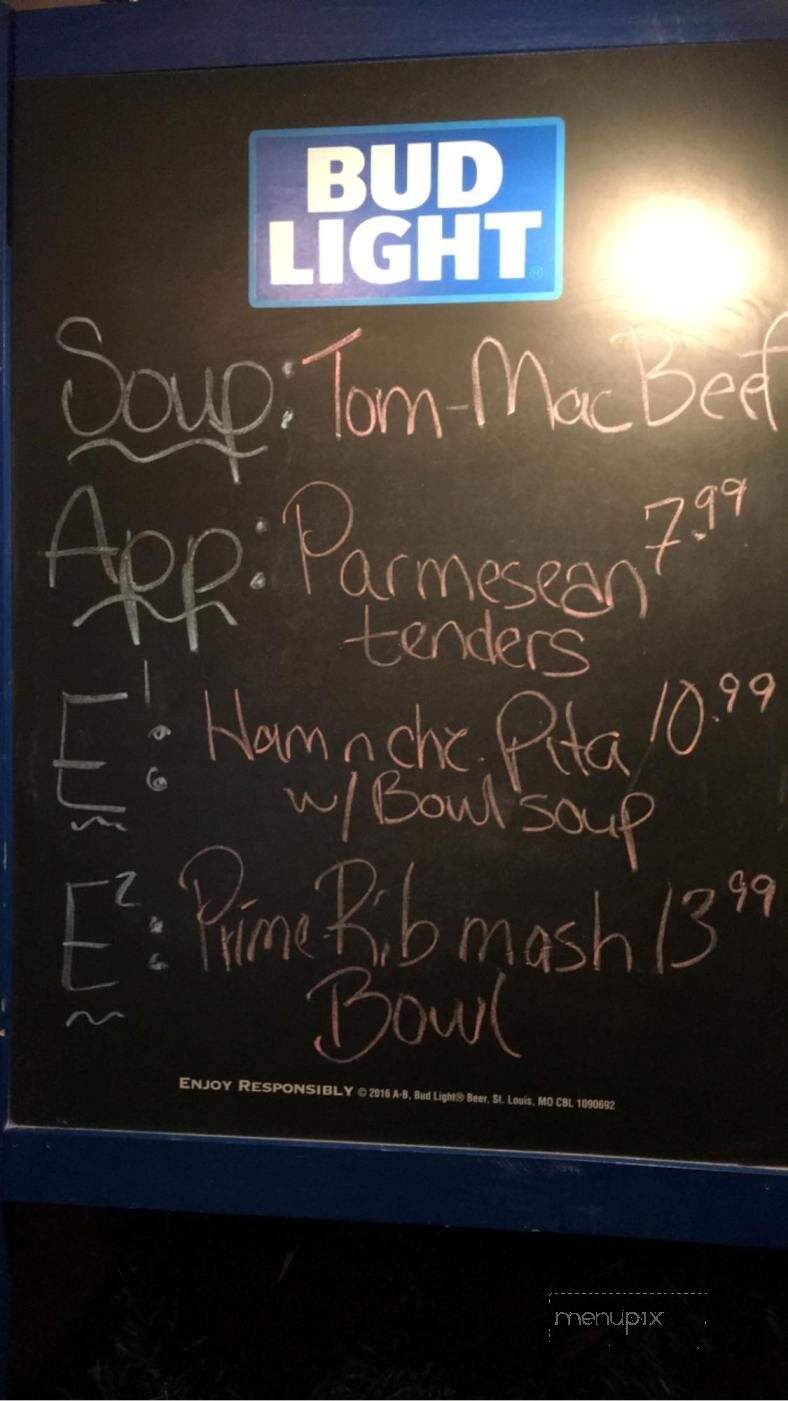 BUD
LIGHT
Soup: Tom-Mac Beef
App: Parmesean 7.99
tenders
E1: Ham n che. Pita 10.99
w/ Bowl soup
E2: Prime Rib mash 13 99
Bowl
ENJOY RESPONSIBLY © 2016 A-B, Bud Light® Beer, St. Louis, MO CBL 1090692
menupix